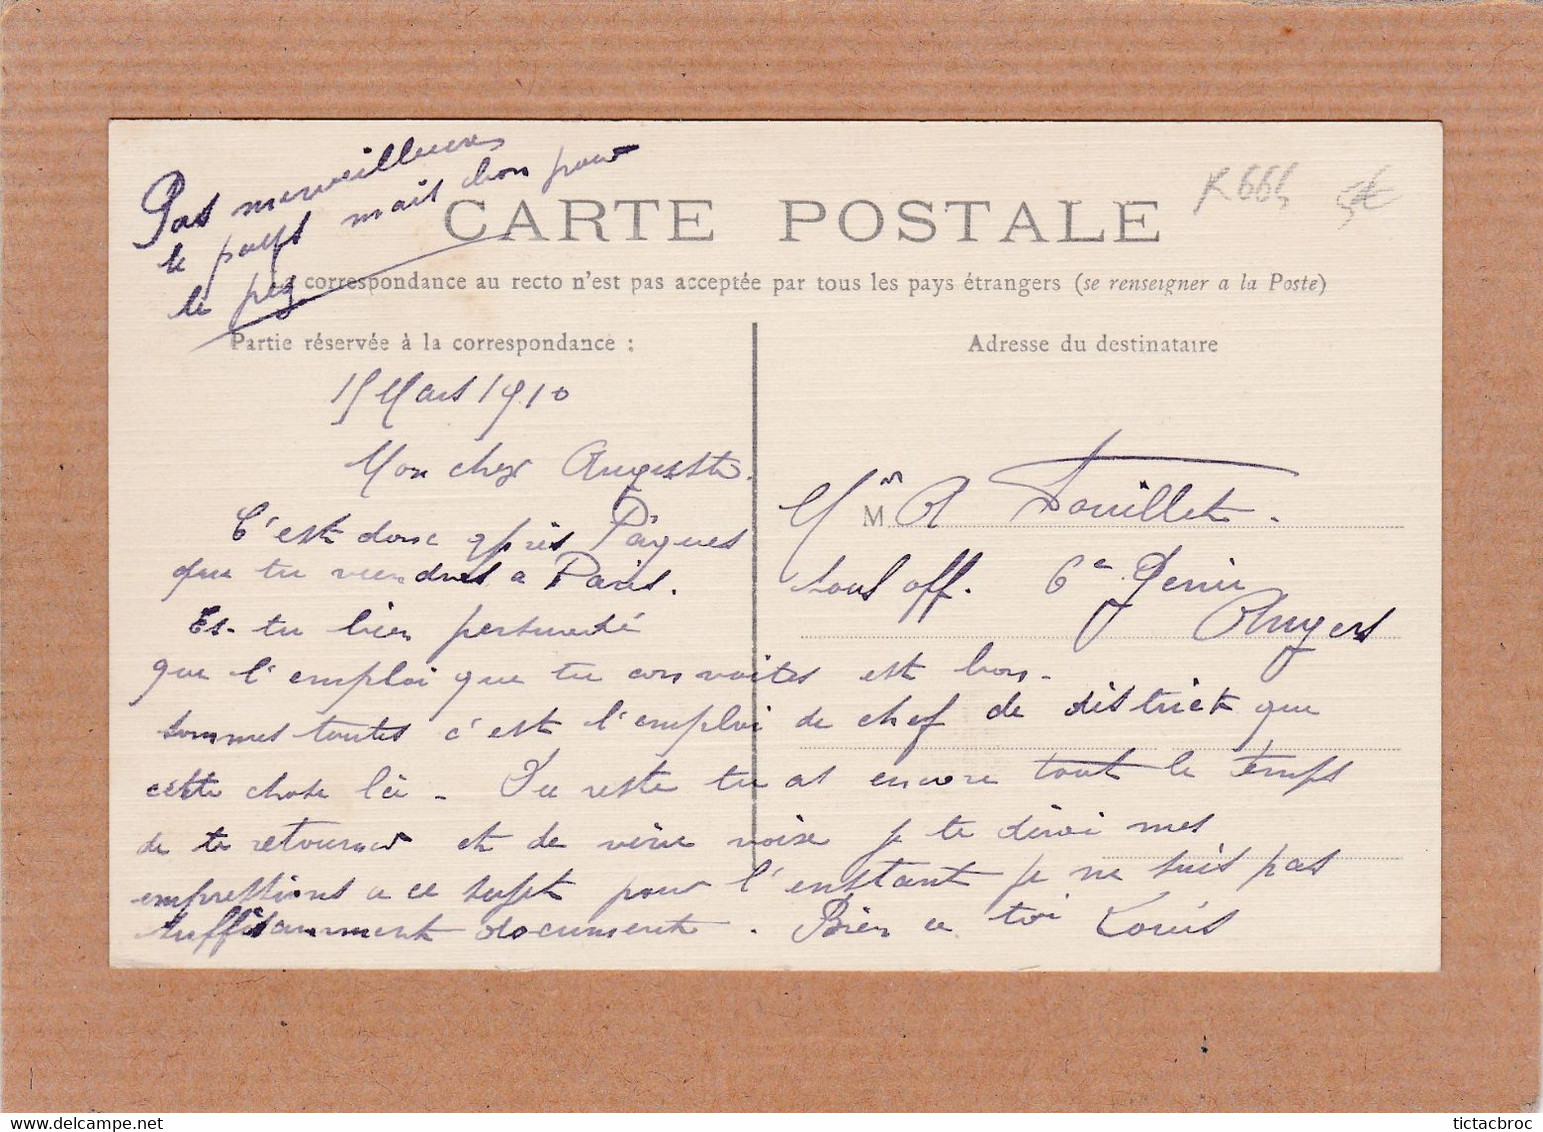 Pas merveilleux
le pays mais bon pour
le
K 666 5€
CARTE POSTALE
correspondance au recto n'est pas acceptée par tous les pays étrangers (se renseigner a la Poste)
Partie réservée à la correspondance :
Adresse du destinataire
15 Mars 1910
Mon cher Auguste.
C'est donc après Pâques
que tu viendras a Paris.
Es-tu bien persuadé
que l'emploi que tu convoites est bon.
sommes toutes c'est l'emploi de chef de district que
cette chose là - Du reste tu as encore tout le temps
de te retourner et de vive voix je te dirai mes
impressions a ce sujet pour l'enstant je ne suis pas
suffisamment documenté. Bien a toi Louis
Mr M A Fouillet.
sous off. 6e Génie
Angers
delcampe.net
tictacbroc